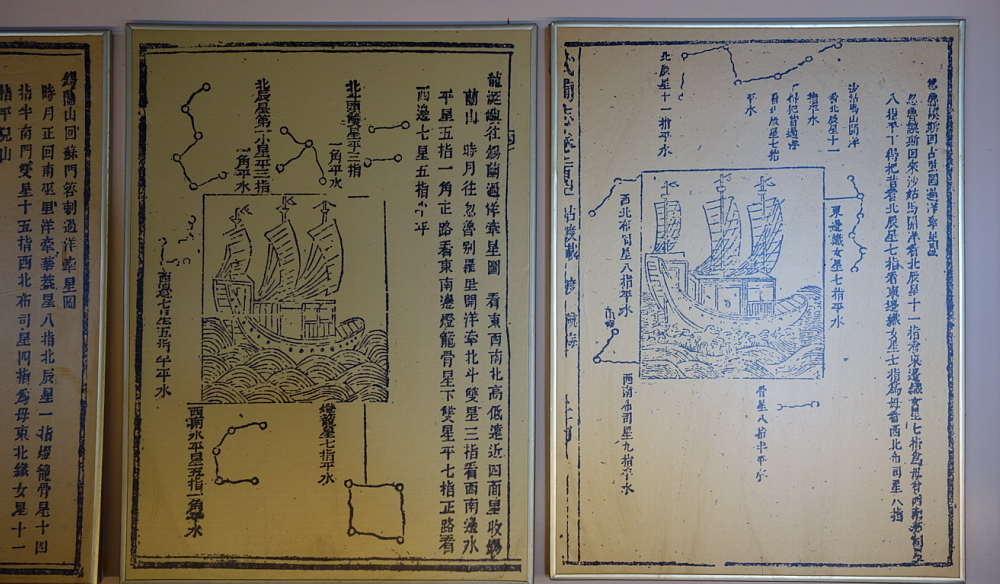 忽魯謨斯回古里國過洋牽星圖
忽魯謨斯回來沙姑馬開洋看北辰星十一指看東邊織女星七指為母看西南布司星
八指平丁得把昔看北辰星七指看東邊織女星七指為母看西北布司星八指
沙姑馬山開洋
看北辰星十一
指平水
丁得把昔過洋
看北辰星七指
平水
北辰星十一指平水
東邊織女星七指平水
西北布司星八指平水
西南布司星九指平水
骨星八指半平水
龍涎嶼往錫蘭過洋牽星圖 看東西南北高低遠近四面星收錫
蘭山 時月往忽魯別羅里開洋牽北斗雙星三指看西南邊水
平星五指一角正路看東南邊燈籠骨星下雙星平七指正路看
西邊七星五指半平
北斗頭雙星平三指
一角平水
北辰星第一小星平三指
一角平水
西邊七星五指半平水
燈籠星七指平水
西南水平星五指一角平水
錫蘭山回蘇門答剌過洋牽星圖
時月正回南巫里洋牽華蓋星八指北辰星一指燈籠骨星十四
指半南門雙星十五指西北布司星四指為母東北織女星十一
指平兒山